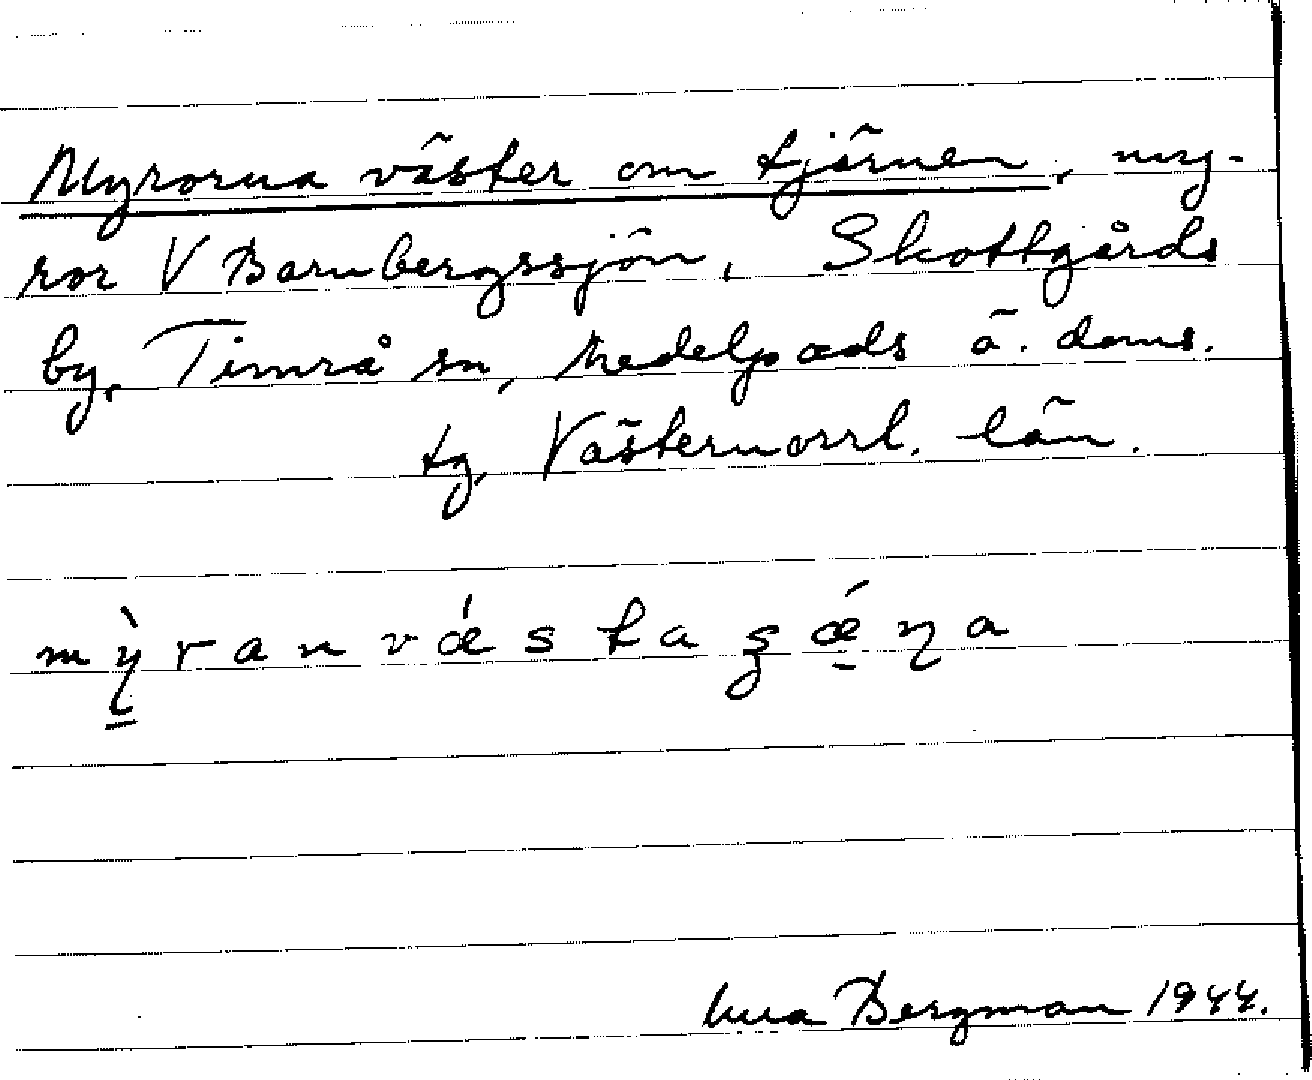 Myrorna väster om tjärnen, myr-
ror V Barnbergssjön, Skottgårds
by, Timrå sn, Medelpads ö. doms.
tg, Västernorrl. län.
mỳ̠ranvǽstaʂǽ̠ɳa
Bergman 1944.